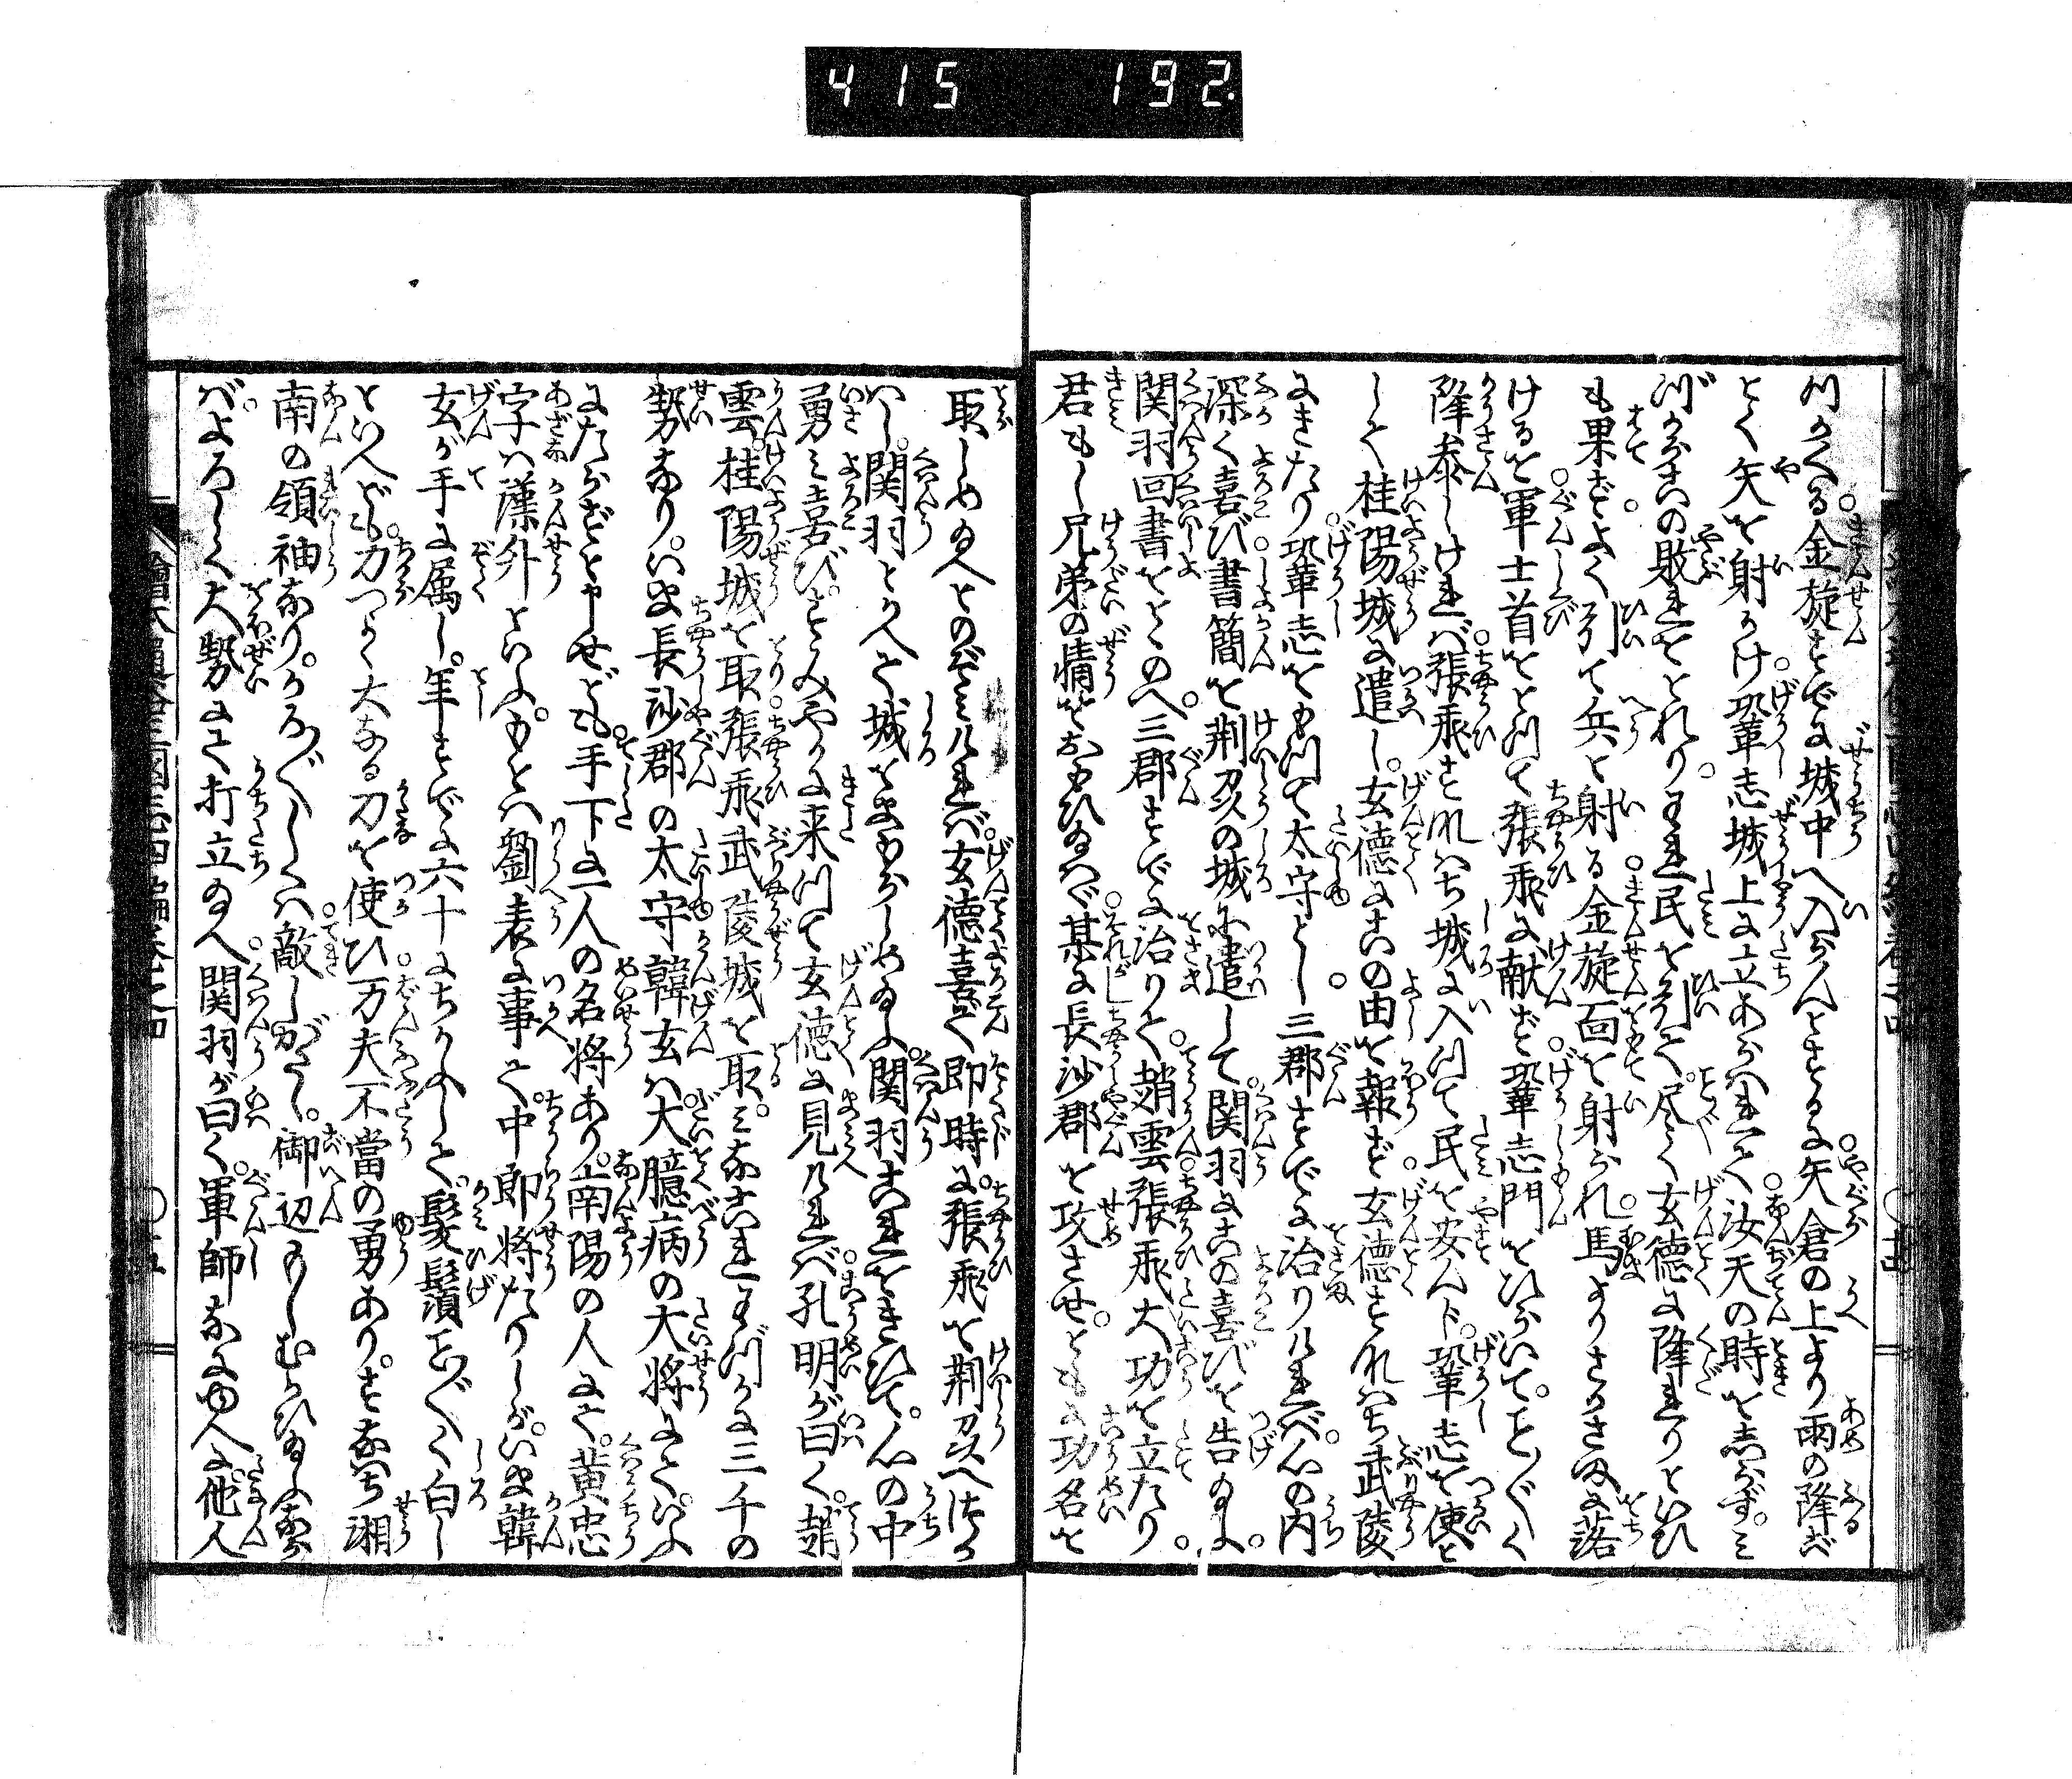 415 192.
川かへる金旋すでに城中へ入らんとするに矢倉の上より雨の降ご
とく矢を射かけ鞏志城上に立あらはれて汝天の時を志らず。み
づから此の敗れをとれり。われ民を引て尽く玄徳に降れりといひ
も果ずよく引て兵と射る金旋面を射られ馬よりさかさまに落
けるを軍士首をとつて張飛に献ず鞏志門をひらいて。ことごとく
降参しければ張飛すなはち城に入つて民を安んド。鞏志を使と
して桂陽城に遣し。玄徳に此の由を報ず玄徳すなはち武陵
にきたり鞏志をもつて太守とし三郡すでに治りければ。心の内
深く喜び書簡を荊州の城に遣して。関羽に此の喜びを告給ふ。
関羽回書をとゝのへ。三郡すでに治りて。趙雲張飛大功を立たり。
君もし兄弟の情をおもひ給はゞ某に長沙郡を攻させ。ともに功名を
取しめ給へとのぞみければ。玄徳喜で即時に。張飛を荊州へつか
はし。関羽とかへて城をまもらしめ給ふ。関羽これをきひて。心の中
勇み喜び。すみやかに来つて玄徳に見れければ孔明が曰く。趙
雲。桂陽城を取張飛武陵城を取。みなこれわづかに三千の
勢なり。いま長沙郡の太守韓玄は。大臆病の大将にて。いふ
にたらざとゝ申せども。手下に一人の名将あり。南陽の人にて。黄忠
字は漢升といふ。もとハ劉表に事て。中郎将たりしが。いま韓
玄が手に属し。年すでに六十にちかふして。髪鬚ことごとく白し
といへども。力つよく大なる刀を使ひ万夫不當の勇あり。すなはち湘
南の領袖なり。かろがろしくハ敵しがたし。御辺もしむかひ給ふなら
ば。よろしく大勢にて打立給へ関羽が曰く。軍師なにゆへに。他人
繪本通俗三國志四編巻之四